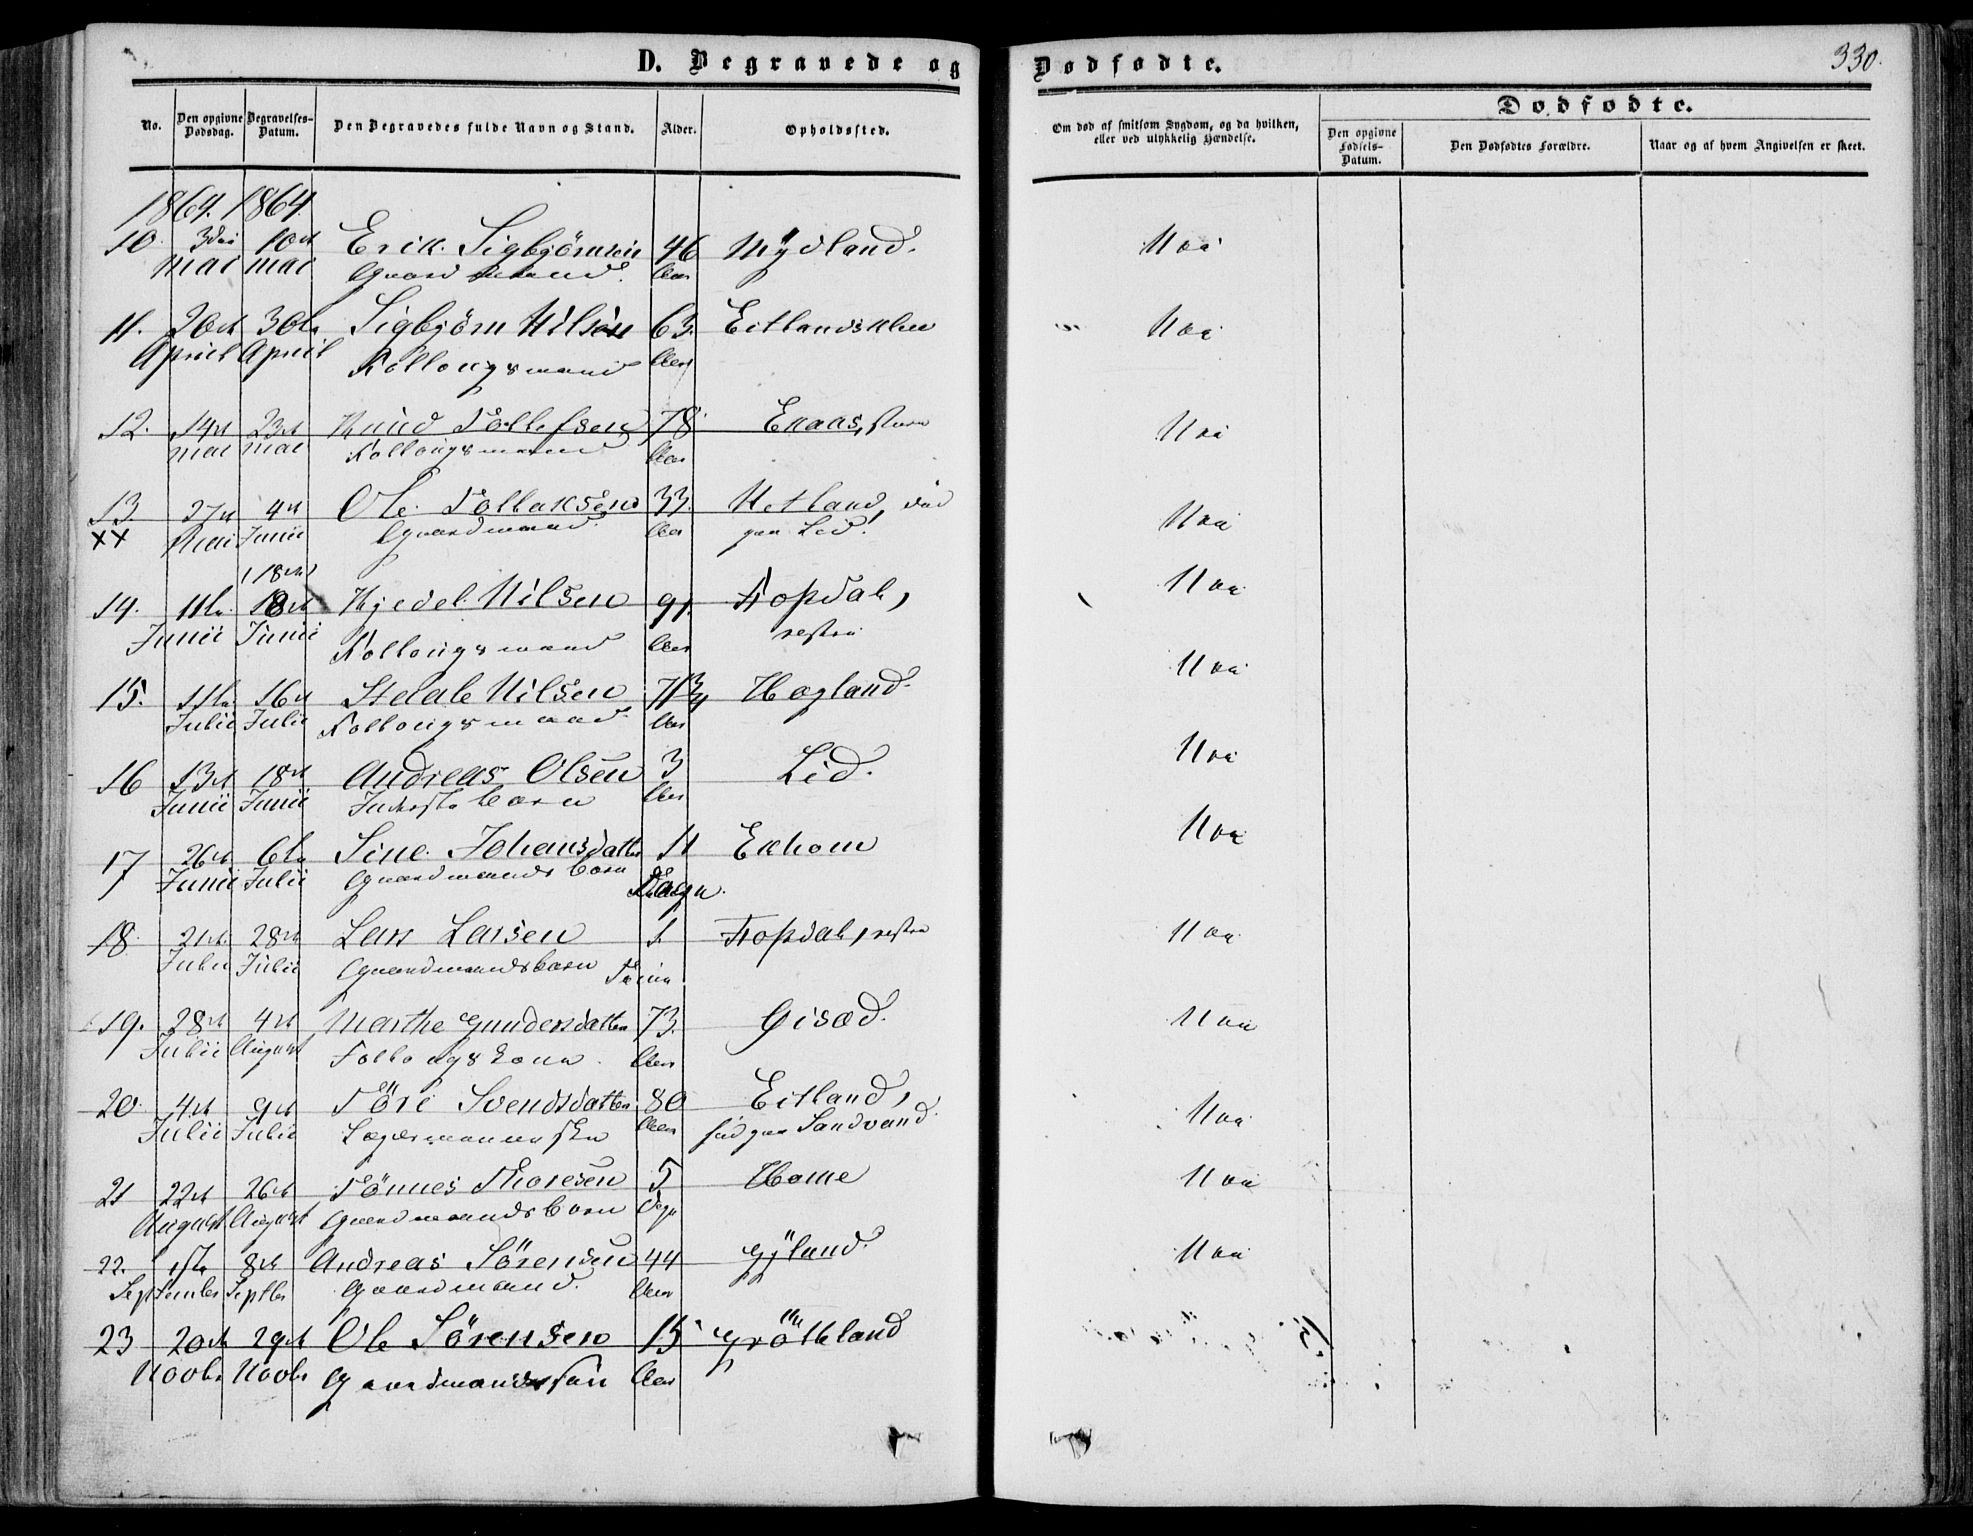 D. Begravede og Dødfødte.
330.
No. Den opgivne Dødsdag. Begravelses-Datum. Den Begravedes fulde Navn og Stand. Alder. Opholdssted. Om død af smitsom Sygdom, og da hvilken, eller ved ulykkelig Hændelse. Dødfødte.
Den opgivne Fødsels-Datum. Den Dødfødtes Forældre. Naar og af hvem Angivelsen er skeet.
1864. 1864.
10. 3die 10de Erik Sigbjörnsen 46 Mydland. Nei
Mai Mai Gaardmand. Aar
11. 20de 30te Sigbjörn Nilsen 63. Eitlandsklev Nei
April April Follougsmand Aar
12. 14de 23de Knud Tollefsen 78 Ekaas, Nei
Mai Mai Follougsmand Aar
13. 27de 4de Ole Tollaksen 33. Hetland, Nei
XX Mai Junii Gaardmand. Aar paa Lid!
(18de)
14. 11te 18de Kjedel Nilsen 91. Fopdal, Nei
Junii Junii Follougsmand Aar vestre
15. 11te 16de Stdale Nilsen 71 3/4 Hogland. Nei
Julii Julii Follougsmand. Aar
16 13de 18de Andreas Olsen 3 Lid. Nei
Junii Junii Inderstebarn Aar
17 26de 6te Sine Johansdatter 11 Ekhom Nei
Junii Julii Gaardmandsbarn Dage.
18. 21de 28de Lars Larsen 1 Fopdal, vestre Nei
Julii Julii Gaardmandsbarn Time
19. 28de 4de Marthe Gundersdatter 73. Gisæd. Nei
Julii August Follougskone. Aar
20. 4de 9de Töri Svendsdatter 80 Eitland, Nei
Julii Julii Aar paa Sandvand.
21 22de 26de Tönnes Thoresen 5 Home Nei
August August Gaardmandsbarn Dage
22. 1ste 8de Andreas Sörensen 44 Gyland. Nei
September Septbr Gaardmand. Aar
23 20de 29de Ole Sörensen 15 Grötteland
Novbr Novbr Gaardmandssön Aar